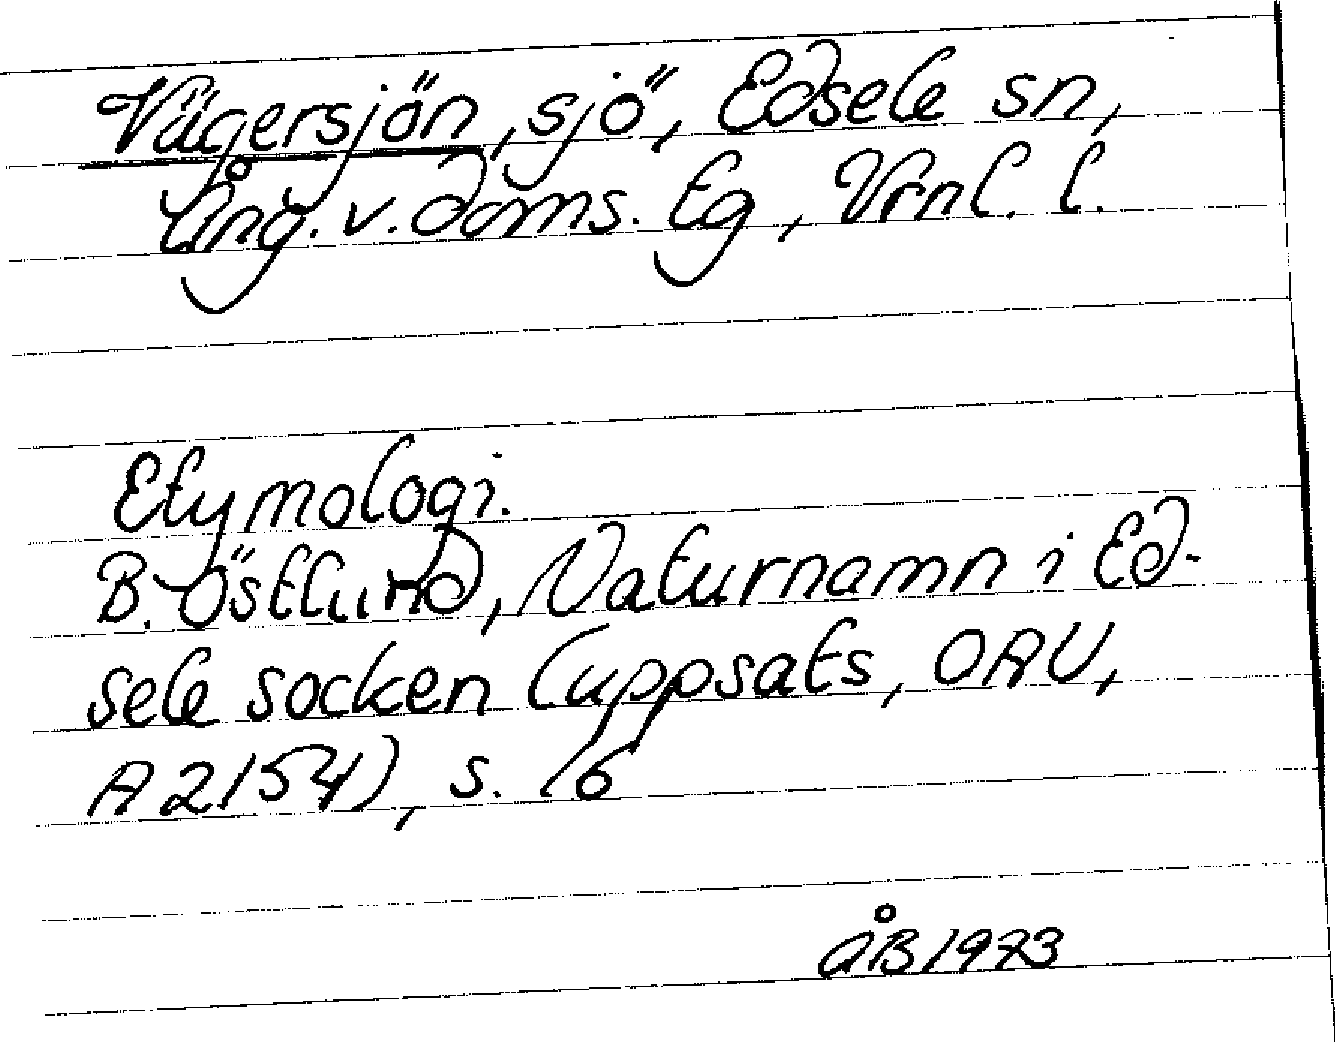 Vägersjön, sjö, Edsele sn,
Ång. v. doms. tg, Vrnl. l.
Etymologi.
B. Östlund, Naturnamn i Ed-
sele socken (uppsats, OAU,
A 2154), s. 16
ÅB 1973